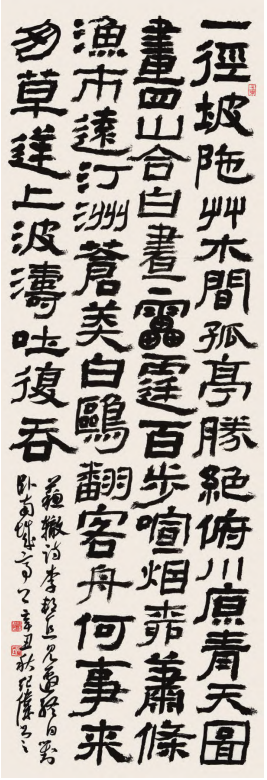 一徑坡陀艸木間孤亭勝絕俯川原青天圖
畫四山合白晝靁霆百步喧烟柳蕭條
漁市遠汀洲蒼莽白鷗翻客舟何事來
匆草逆上波濤吐復吞
蘇轍詩李邦直見邀終日對
卧南城亭上辛丑秋紀偉書之